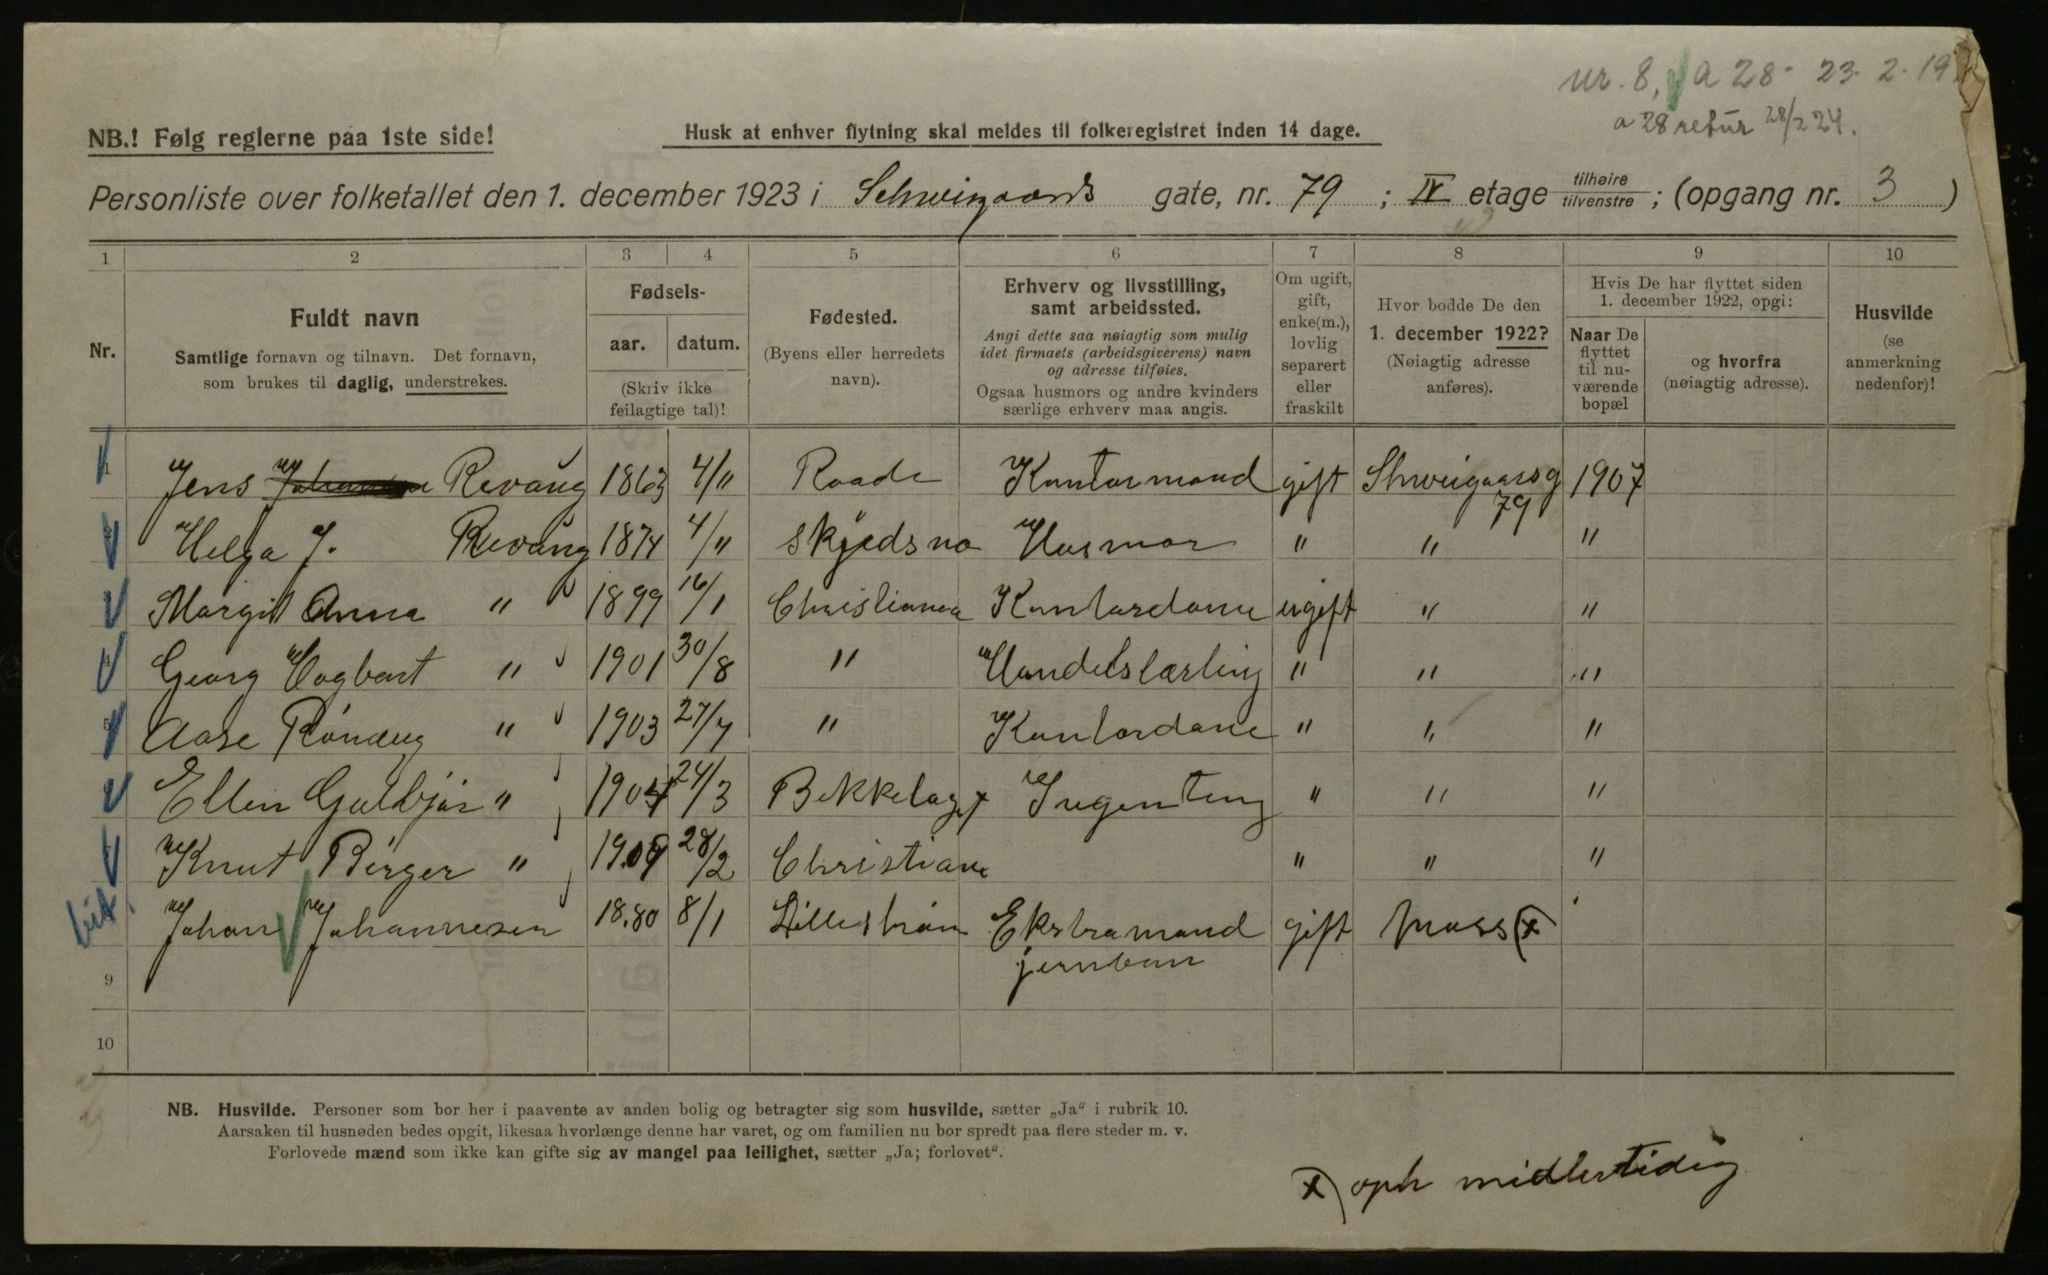 nr. 8, a 28 - 23. 2. 19
a 28 retur 28/2 24.
NB.! Følg reglerne paa 1ste side!
Husk at enhver flytning skal meldes til folkeregistret inden 14 dage.
Personliste over folketallet den 1. december 1923 i Schweigaards gate, nr. 79 ; IV etage tilhøire tilvenstre ; (opgang nr. 3 )
1 2 3 4 5 6 7 8 9 10
Nr.
Fuldt navn
Samtlige fornavn og tilnavn. Det fornavn,
som brukes til daglig, understrekes.
Fødsels-
aar. datum.
(Skriv ikke
feilagtige tal)!
Fødested.
(Byens eller herredets
navn).
Erhverv og livsstilling,
samt arbeidssted.
Angi dette saa nøiagtig som mulig
idet firmaets (arbeidsgiverens) navn
og adresse tilføies.
Ogsaa husmors og andre kvinders
særlige erhverv maa angis.
Om ugift,
gift,
enke(m.),
lovlig
separert
eller
fraskilt
Hvor bodde De den
1. december 1922?
(Nøiagtig adresse
anføres).
Hvis De har flyttet siden
1. december 1922, opgi:
Naar De
flyttet
til nu-
værende
bopæl
og hvorfra
(nøiagtig adresse).
Husvilde
(se
anmerkning
nedenfor)!
1 Jens Revaug 1863 4/11 Raade Kontormand gift Shweigaarsg 79 1907
2 Helga J. Revaug 1874 4/11 Skjedsmo Husmor " " "
3 Margit Anna " 1899 16/1 Christiania Kontordame ugift " "
4 Georg Hagbart " 1901 30/8 " Handelslærling " " "
5 Aase Rønaug " 1903 27/7 " Kontordame " " "
6 Ellen Guldbjør " 1904 24/3 Bekkelaget Ingenting " " "
7 Knut Birger " 1909 28/2 Christiania " " "
Johan Johannesen 18.80 8/1 Lillestrøm Ekstramand gift Moss (x
jernban
9
10
NB. Husvilde. Personer som bor her i paavente av anden bolig og betragter sig som husvilde, sætter „Ja“ i rubrik 10.
Aarsaken til husnøden bedes opgit, likesaa hvorlænge denne har varet, og om familien nu bor spredt paa flere steder m. v.
Forlovede mænd som ikke kan gifte sig av mangel paa leilighet, sætter „Ja; forlovet“.
x) oph midlertidig